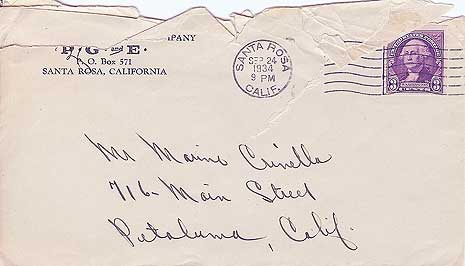 MPANY
P. G. AND E.
P. O. Box 571
SANTA ROSA, CALIFORNIA
SANTA ROSA
SEP 24
1934
9 PM
CALIF.
3 3
Mr Marino Crinella
716- Main Street
Petaluma, Calif.